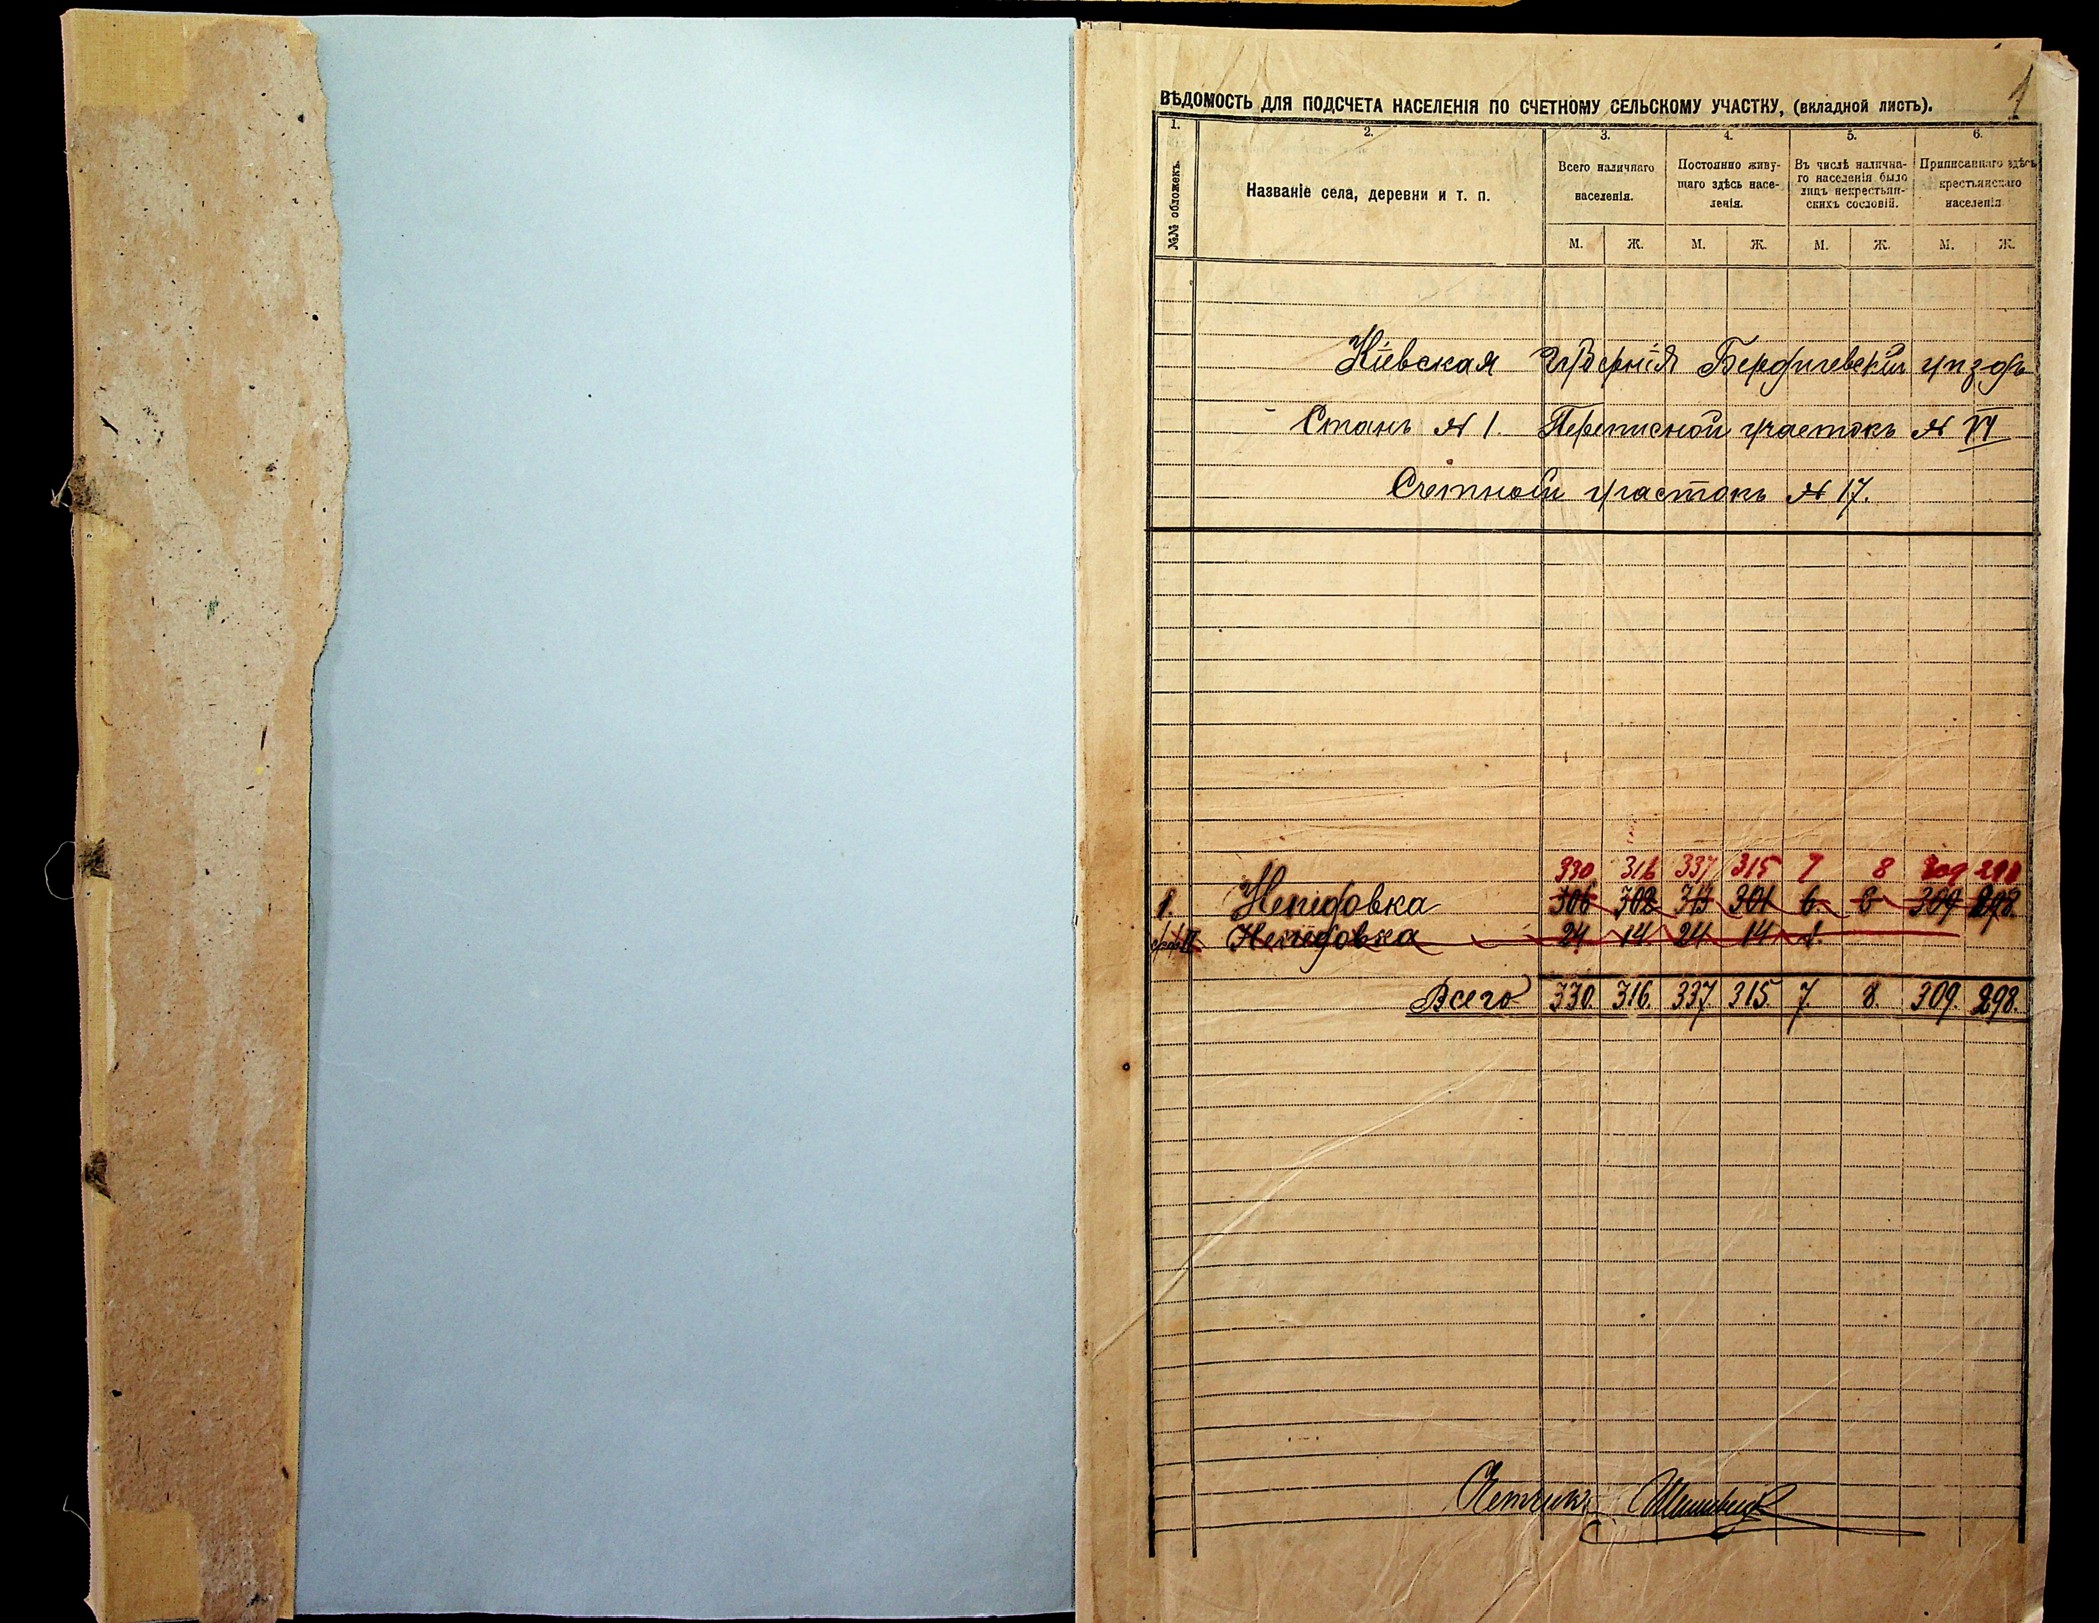 1
ВѢДОМОСТЬ ДЛЯ ПОДСЧЕТА НАСЕЛЕНІЯ ПО СЧЕТНОМУ СЕЛЬСКОМУ УЧАСТКУ, (вкладной листъ).
1. 2. 3. 4. 5. 6.
№№ обложекъ.
Названіе села, деревни и т. п.
Всего наличнаго
населенія.
Постоянно живу-
щаго здѣсь насе-
ленія.
Въ числѣ налична-
го населенія было
лицъ некрестьян-
скихъ сословій.
Приписаннаго здѣсь
крестьянскаго
населенія
М. Ж. М. Ж. М. Ж. М. Ж.
Кіевская губернія Бердичевскій уѣздъ
Станъ № 1. Переписной участокъ № VI
Счетной участокъ № 17.
330 316 337 315 7 8 309 298
1. Непедовка 306 302 313 301 6 8 309 298.
Непедовка 24 14 24 14 1.
Всего 330. 316. 337. 315. 7. 8. 309. 298.
Счетчикъ